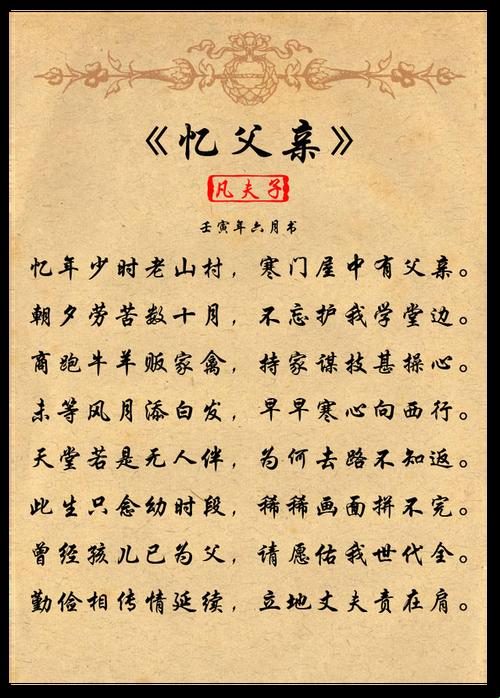 《忆父亲》
凡夫子
壬寅年六月书
忆年少时老山村，寒门屋中有父亲。
朝夕劳苦数十月，不忘护我学堂边。
商跑牛羊贩家禽，持家谋技甚操心。
未等风月添白发，早早寒心向西行。
天堂若是无人伴，为何去路不知返。
此生只愈幼时段，稀稀画面拼不完。
曾经孩儿已为父，请愿佑我世代全。
勤俭相传情延续，立地丈夫责在肩。